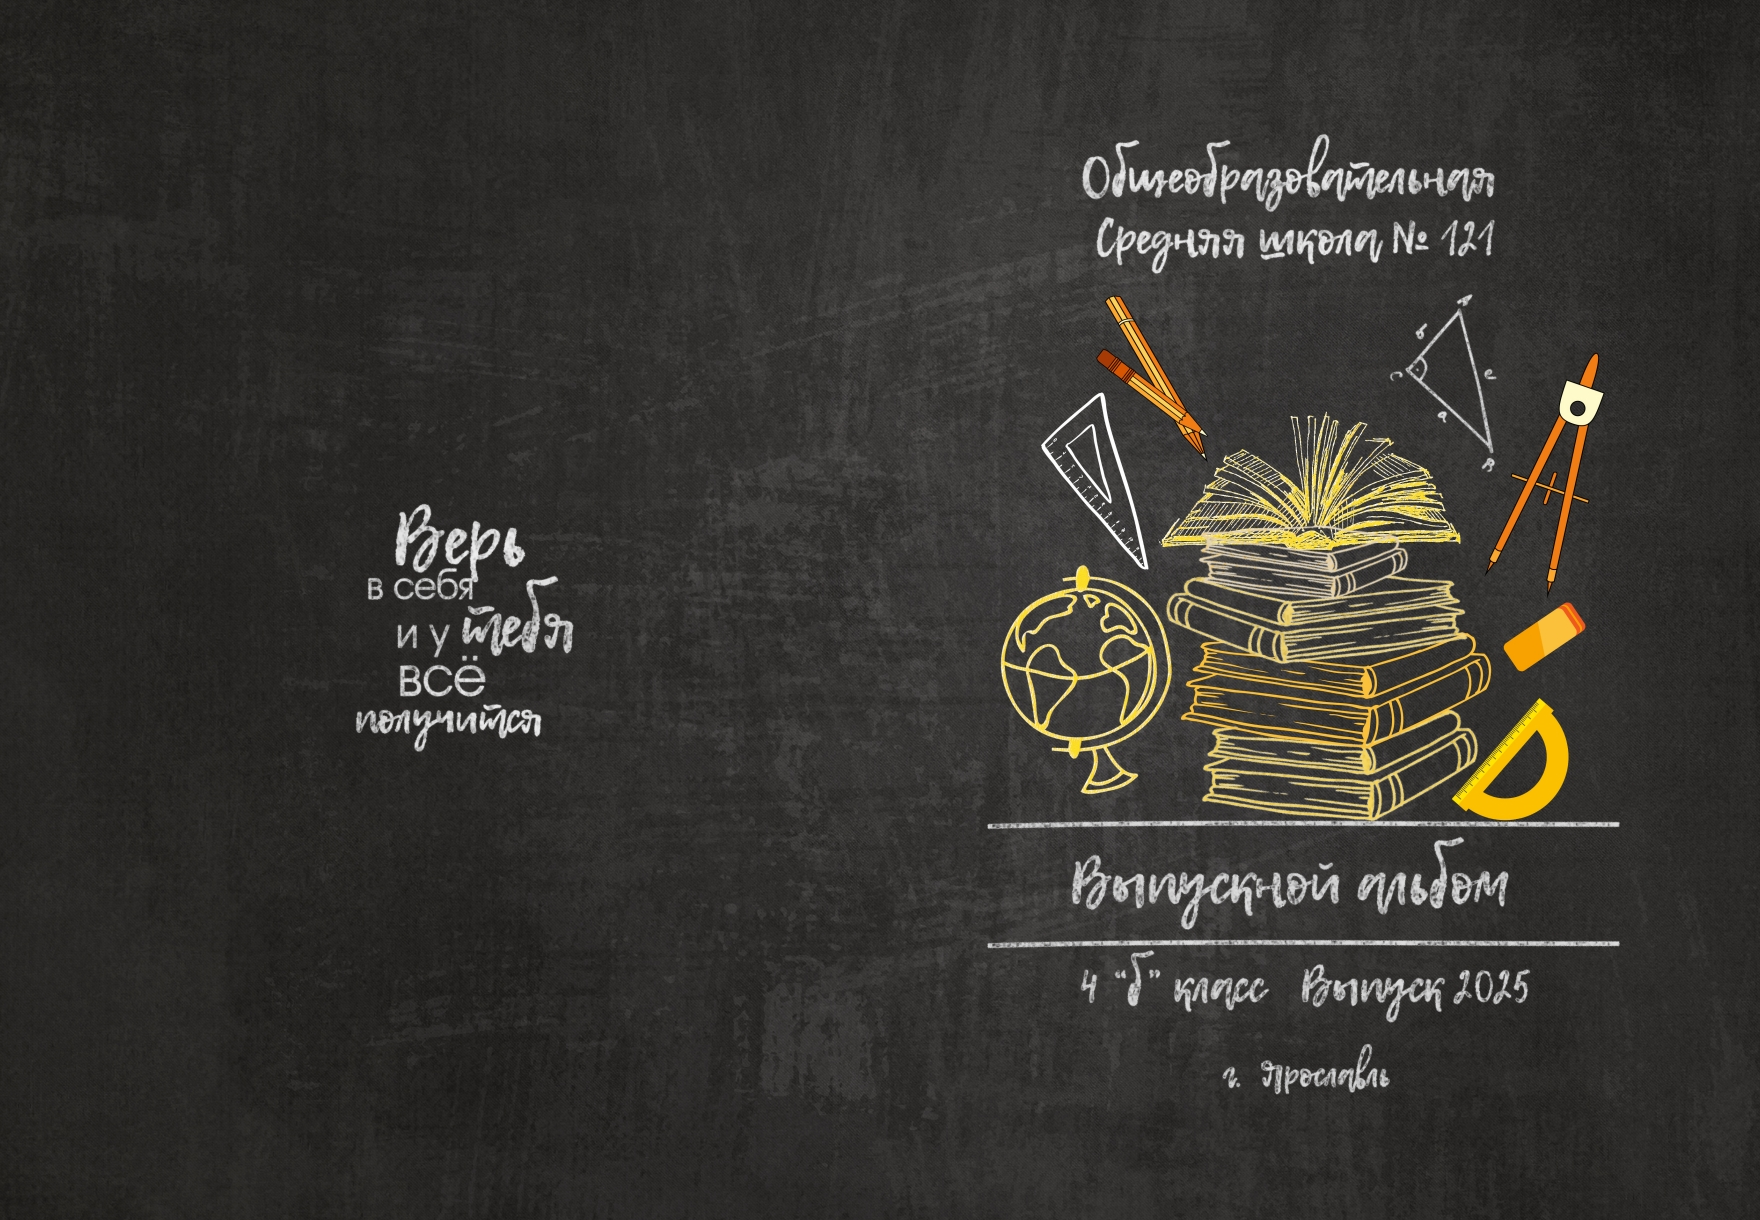 Верь
в себя
и у тебя
всё
получится
Общеобразовательная
Средняя школа № 121
A
б
с
C
a
B
Выпускной альбом
4 “б” класс Выпуск 2025
г. Ярославль